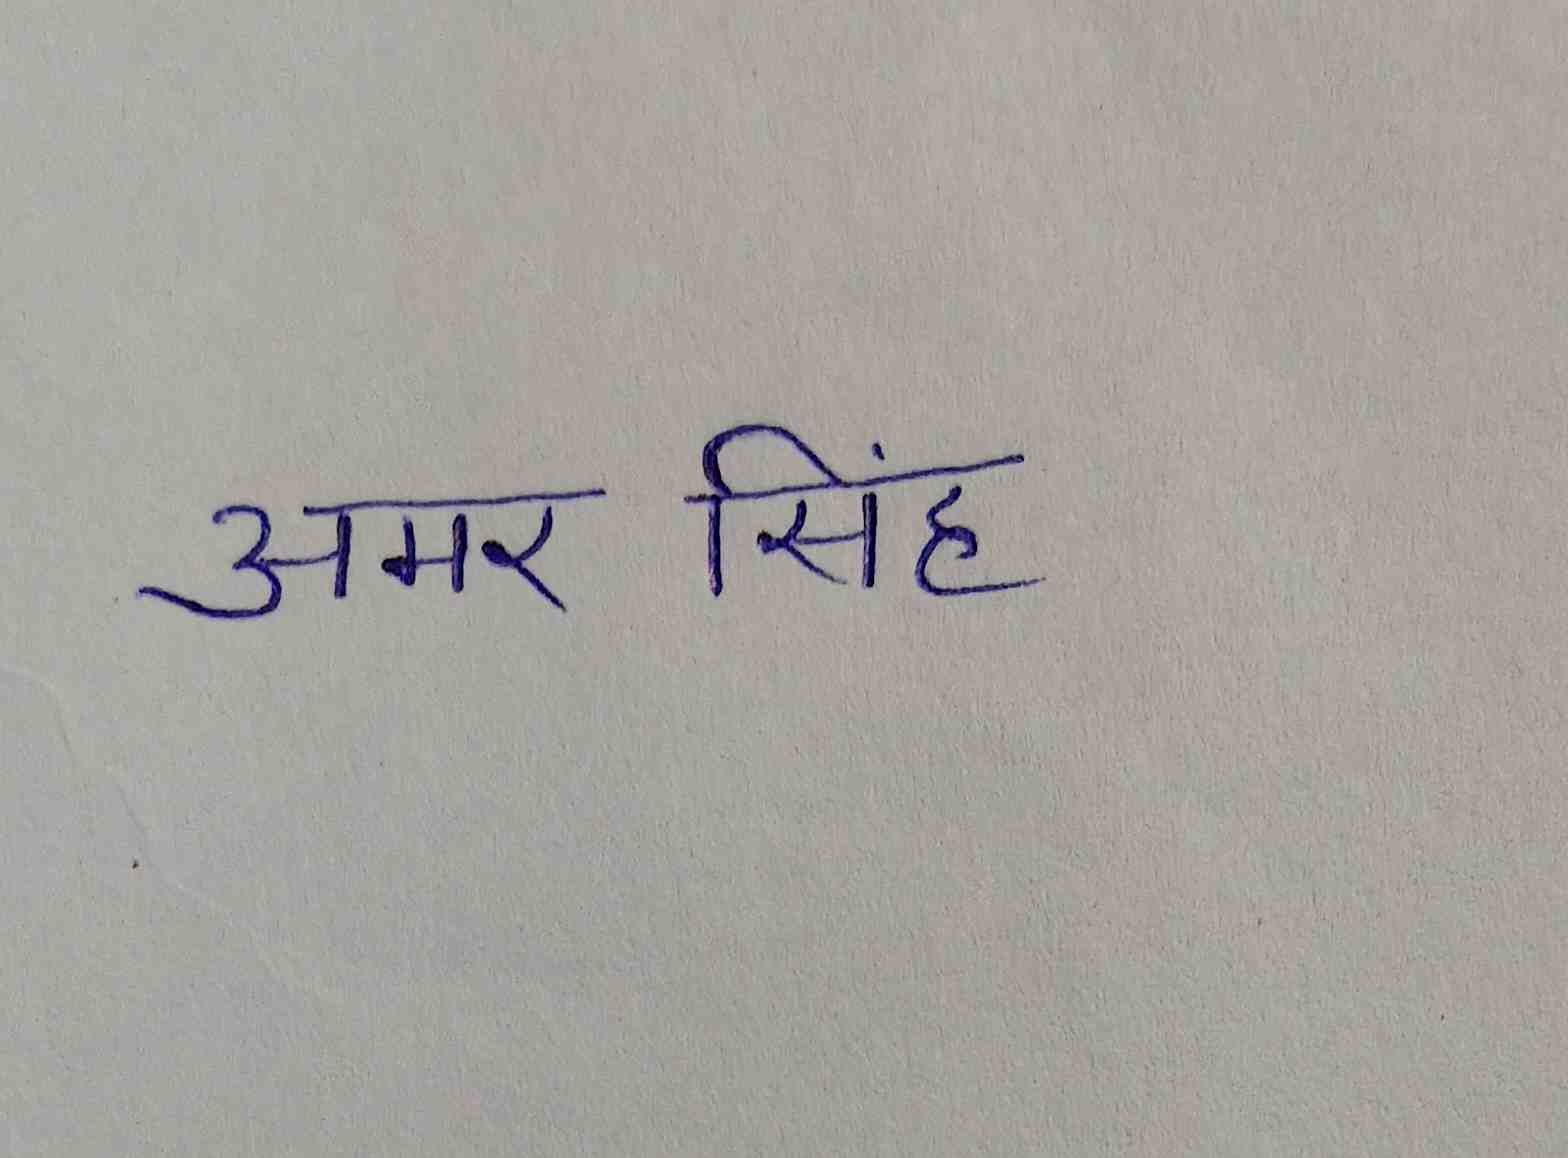 अमर सिंह